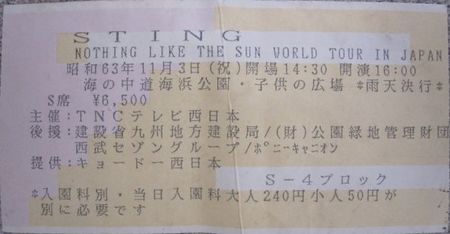 STING
NOTHING LIKE THE SUN WORLD TOUR IN JAPAN
昭和63年11月3日(祝)開場14:30 開演16:00
海の中道海浜公園・子供の広場 *雨天決行*
S席 ¥6,500
主催:TNCテレビ西日本
後援:建設省九州地方建設局/(財)公園緑地管理財団
西武セゾングループ/ポニーキャニオン
提供:キョードー西日本
S-4ブロック
*入園料別・当日入園料大人240円小人50円が
別に必要です